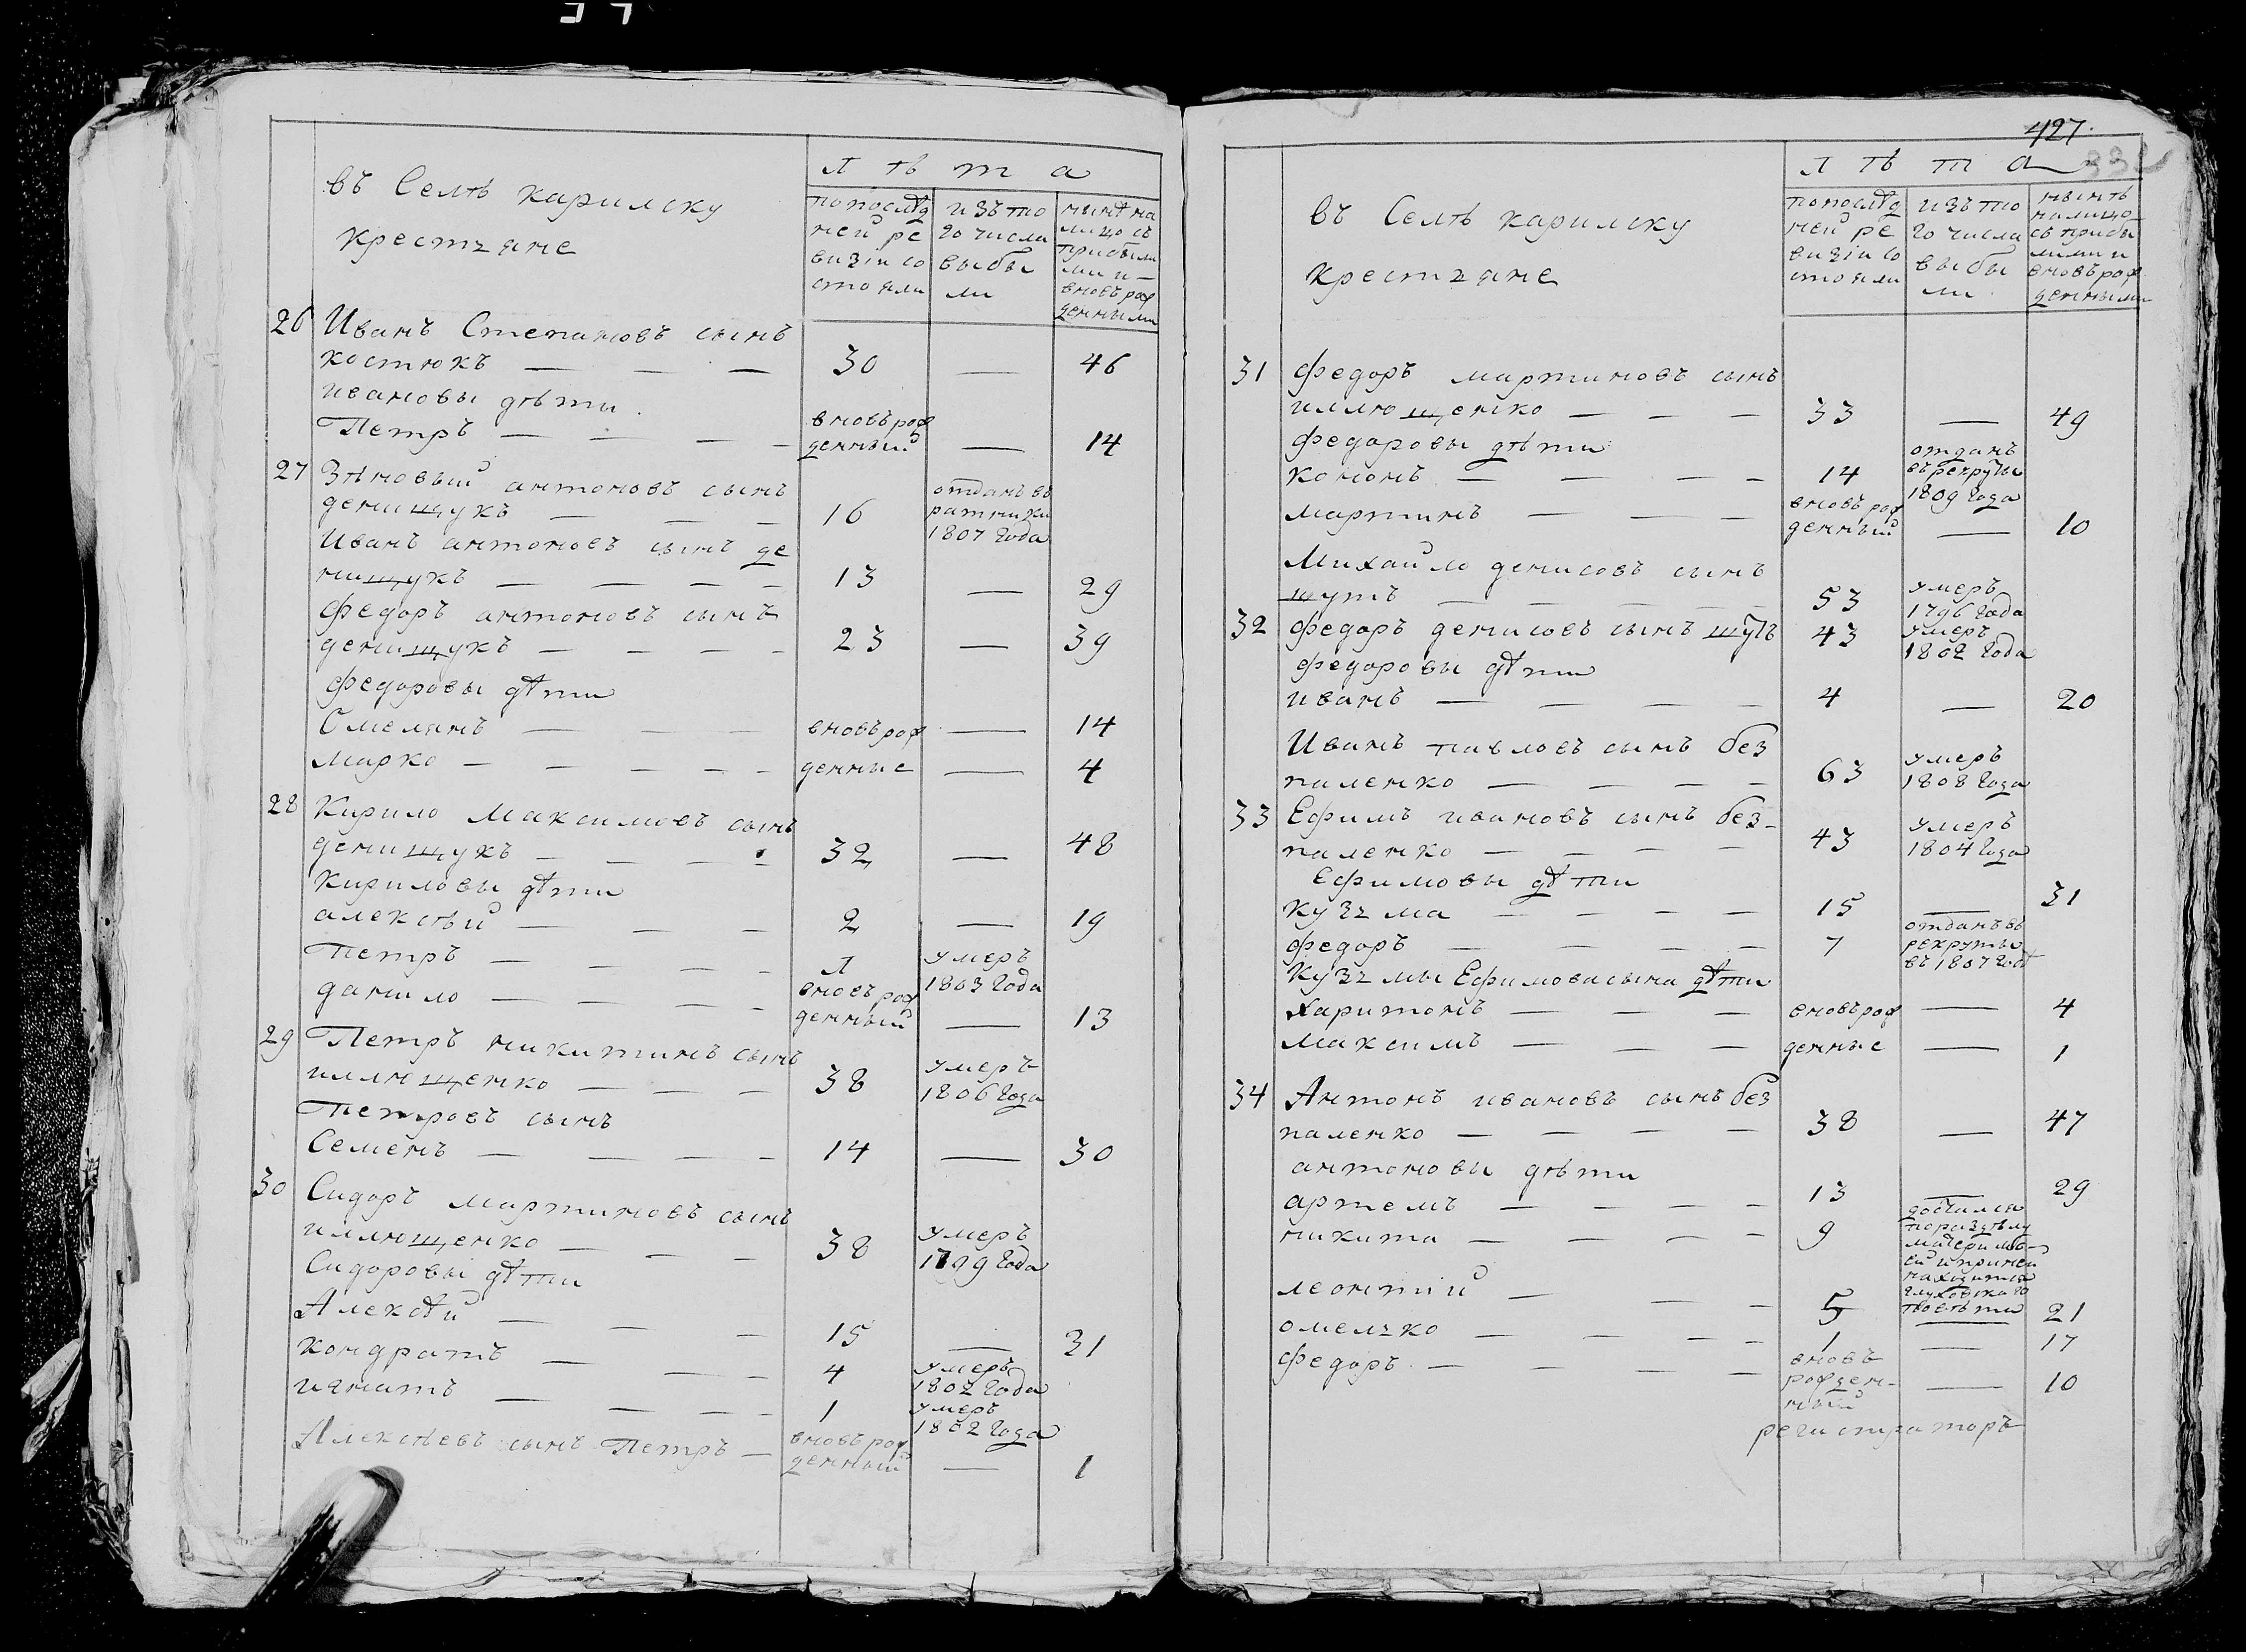 въ Селѣ карилску
крестьяне
Лѣта
попослѣд
ней ре
визiи со
стояли
изъ то
го числа
выбы
ли
нынѣ на
лицо съ
прибылы
ми и
вновь рож
денными
26 Иванъ Степановъ сынъ
костюкъ — — — 30 — 46
ивановы дѣти
Петръ — — — — вновь рож
денный — 14
27 Зѣновый антоновъ сынъ
денищукъ — — — 16 отданъ въ
ратники
1807 года
Иванъ антоновъ сынъ де
нищукъ — — — — 13 — 29
федоръ антоновъ сынъ
денищукъ — — — — 23 — 39
федоровы дѣти
Омелянъ — — — вновь рож — 14
марко — — — — — денные — 4
28 Кирило Максимовъ сынъ
денищукъ — — — — 32 — 48
Кириловы дѣти
алексѣй — — — 2 — 19
Петръ — — — — Л умеръ
1803 года
данило — — — — вновь рож
денный — 13
29 Петръ никитинъ сынъ
иллющенко — — — 38 умеръ
1806 года
Петровъ сынъ
Семенъ — — — — 14 — 30
30 Сидоръ мартиновъ сынъ
иллющенко — — — 38 умеръ
1799 года
Сидоровы дѣти
Алексѣй — — — 15 — 31
кондратъ — — — 4 умеръ
1802 года
игнатъ — — — — 1 умеръ
1802 года
Алексѣевъ сынъ Петръ — вновь рож
денный — 1
427.
въ Селѣ карилску
крестьяне
Лѣта
попослѣд
ней ре
визiи со
стояли
изъ то
го числа
выбы
ли
нынѣ
налицо
съ прибы
лыми и
вновь рож
денными
31 федоръ мартиновъ сынъ
иллющенко — — — 33 — 49
федоровы дѣти
кононъ — — — — 14 отданъ
въ рекруты
1809 года
мартинъ — — — вновь рож
денный — 10
Михайло денисовъ сынъ
шутъ — — — — — 53 умеръ
1796 года
32 федоръ денисовъ сынъ шутъ 43 умеръ
1802 года
федоровы дѣти
иванъ — — — — 4 — 20
Иванъ павловъ сынъ без
паленко — — — — 63 умеръ
1808 года
33 Ефимъ ивановъ сынъ без-
паленко — — — — 43 умеръ
1804 года
Ефимовы дѣти
кузьма — — — — 15 — 31
федоръ — — — — 7 отданъ въ
рекруты
въ 1807 год
кузьмы Ефимова сына дѣти
харитонъ — — — вновь рож — 4
максимъ — — — денные — 1
34 Антонъ ивановъ сынъ без
паленко — — — — 38 — 47
антоновы дѣти
артемъ — — — — 13 — 29
никита — — — — 9 достался
по раздѣлу
леонтiй — — — 5 — 21
омелько — — — — 1 — 17
федоръ — — — — вновь
рожден-
ный — 10
регистраторъ